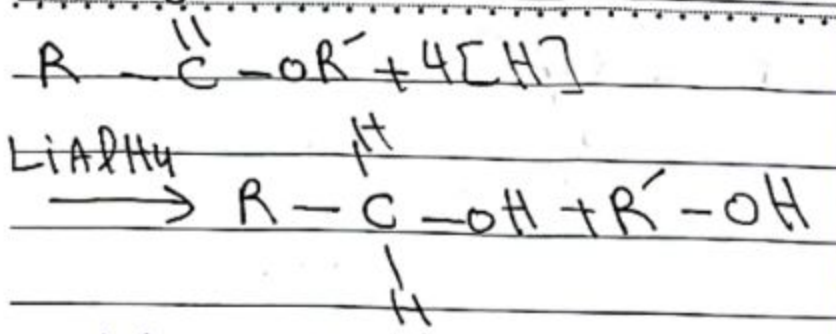 ||
R - C - OR´ + 4[H]
LiAlH4
H
|
→ R - C - OH + R´ - OH
|
H